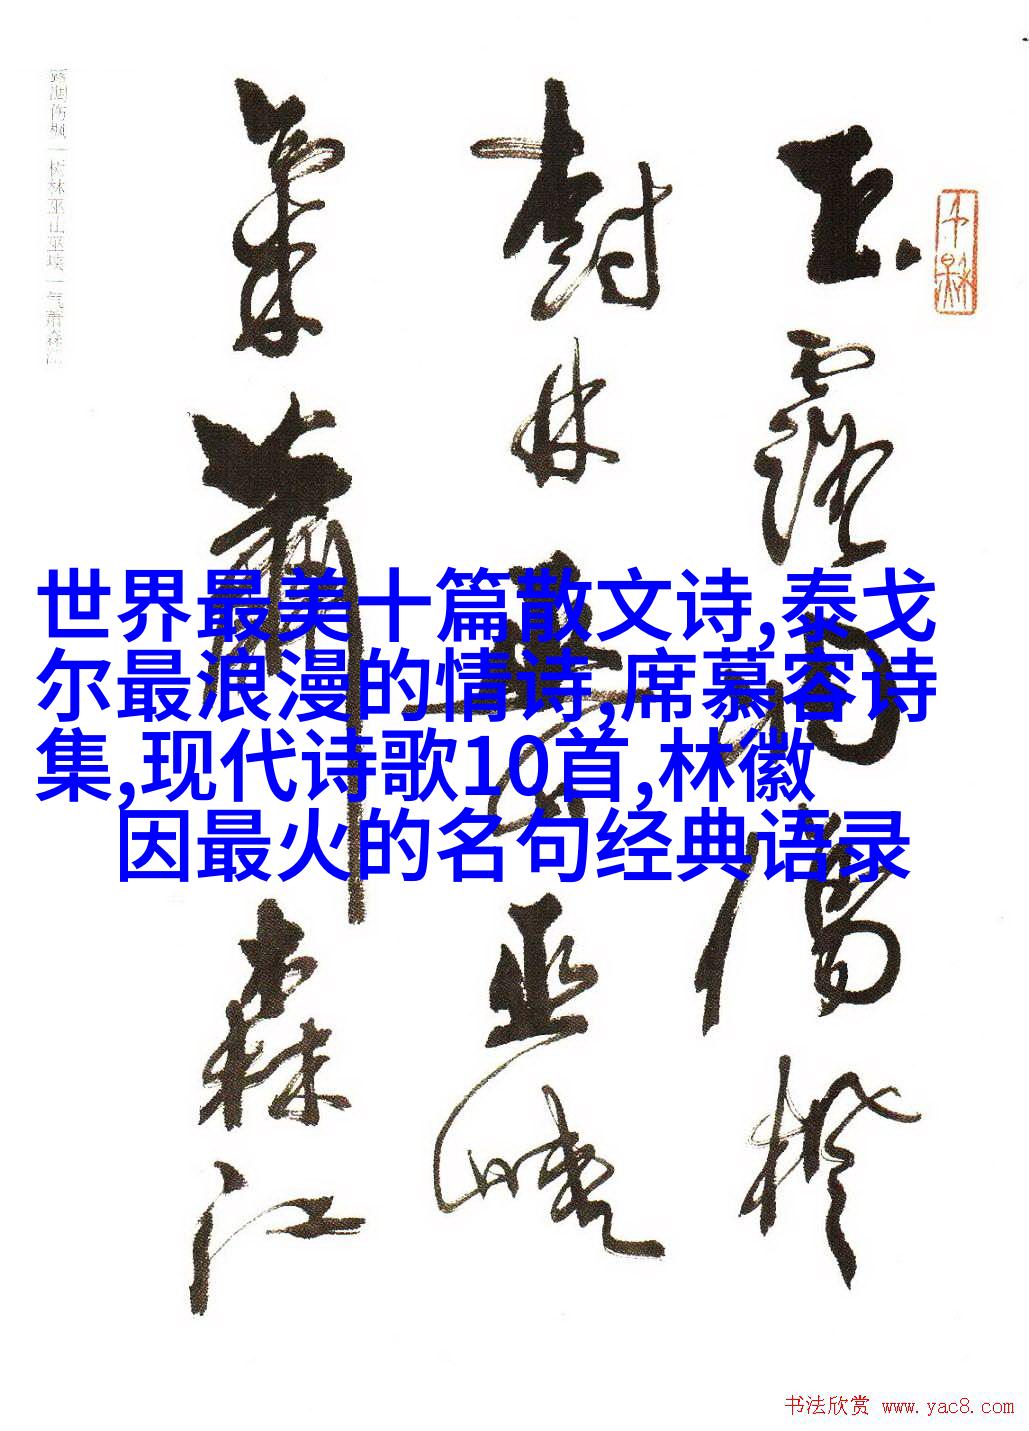 玉露凋傷楓
樹林巫山巫峽
氣蕭森江
世界最美十篇散文诗,泰戈
尔最浪漫的情诗,席慕容诗
集,现代诗歌10首,林徽
因最火的名句经典语录
书法欣赏 www.yac8.com